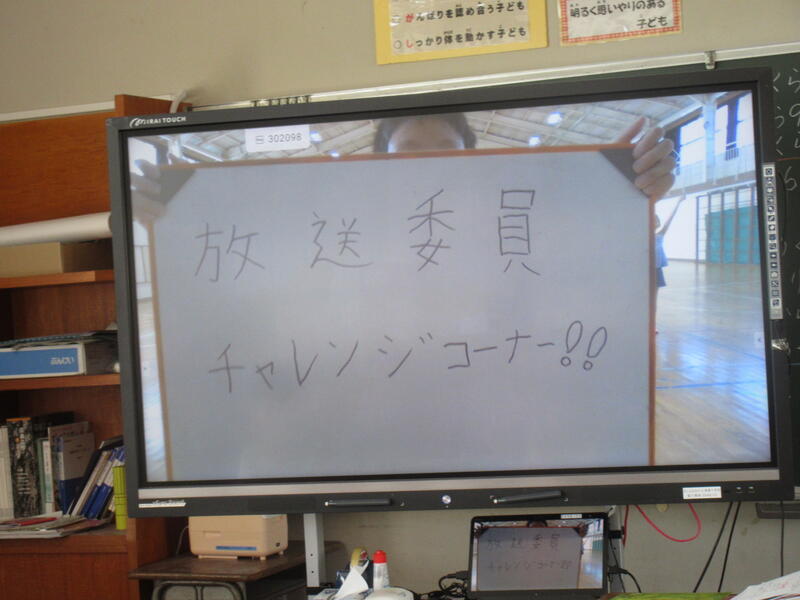 がんばりを認め合う子ども
○しっかり体を動かす子ども
明るく思いやりのある
子ども
MIRAI TOUCH
302098
放送委員
チャレンジコーナー!!
ぶんけい
放送委員
チャレンジコーナー!!